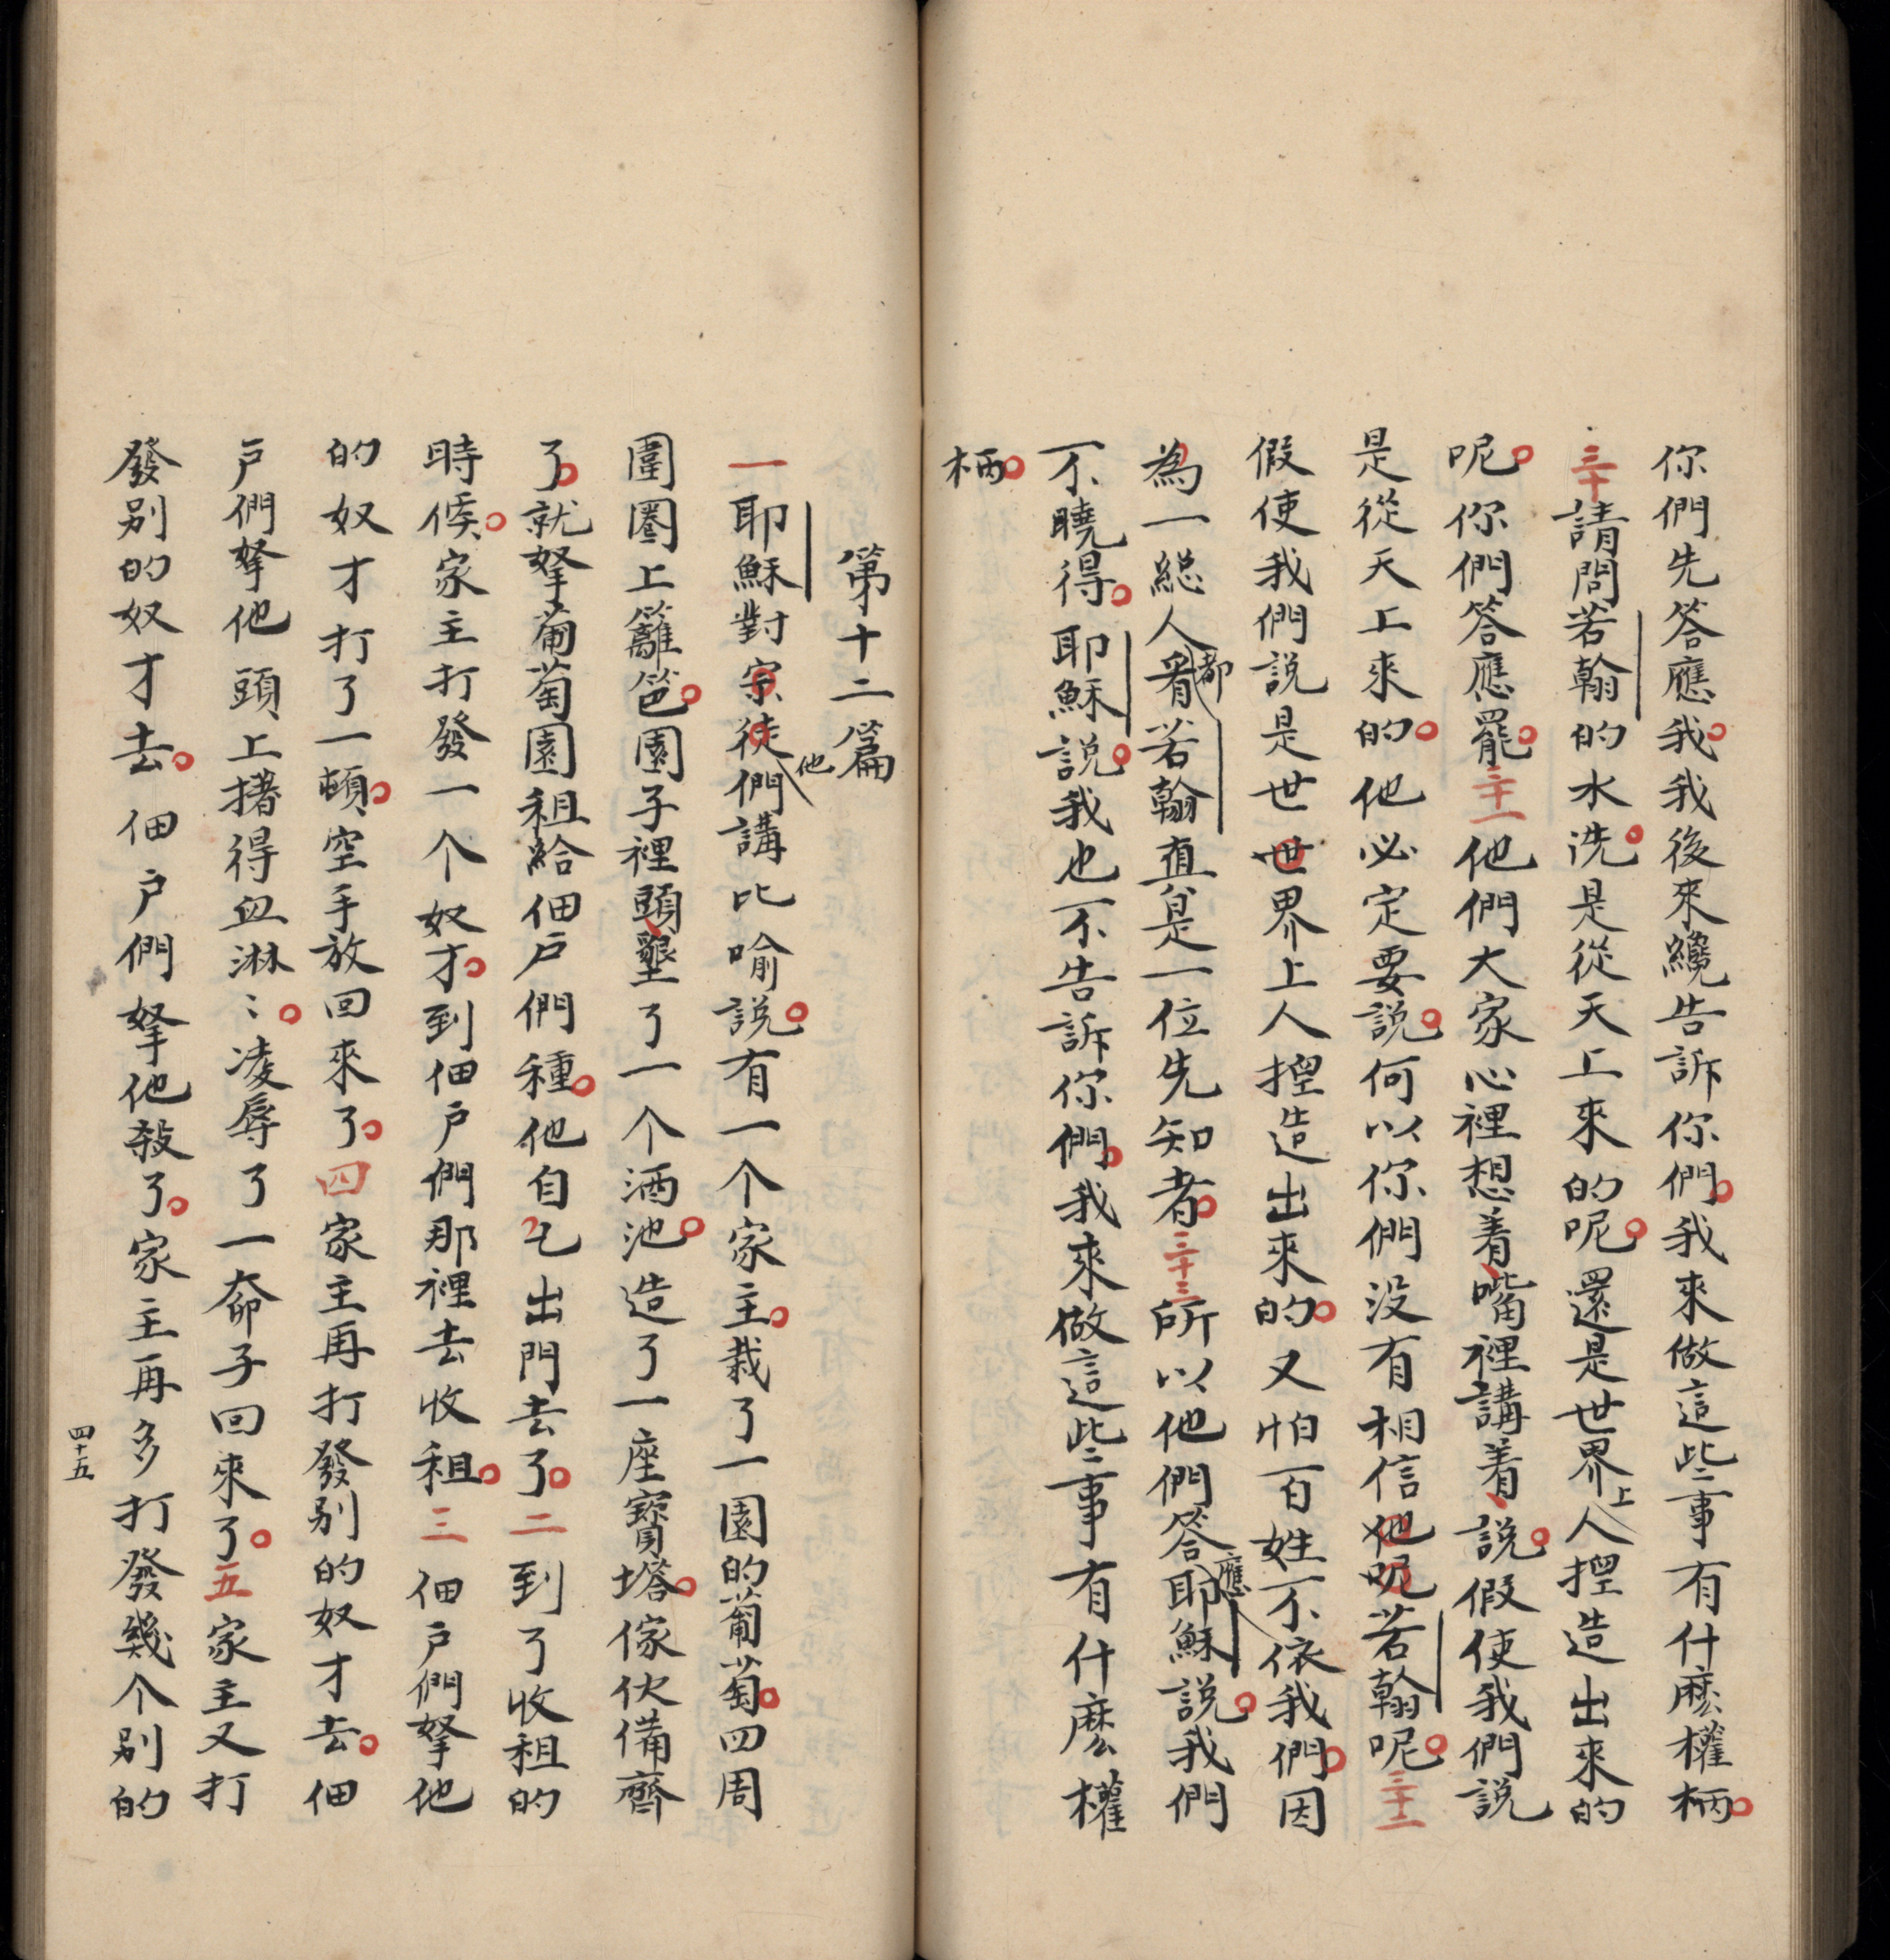 你們先答應我我後來纔告訴你們我來做這些事有什麽權柄
三十請問若翰的水洗是從天上來的呢還是世界上人揑造出來的
呢你們答應罷三十一他們大家心裡想着嘴裡講着說假使我們説
是從天上來的他必定要說何以你們没有相信他呢若翰呢三十二
假使我們説是世世界上人揑造出來的又怕百姓不依我們因
為一總人都看若翰直是一位先知者三十三所以他們答應耶穌說我們
不曉得耶穌說我也不告訴你們我來做這些事有什麽權
柄
第十二篇
一耶穌對宗徒他們講比喻說有一个家主栽了一園的葡萄四周
圍圈上籬笆園子裡頭墾了一个酒池造了一座寶塔傢伙備齊
了就拏葡萄園租給佃户們種他自己出門去了二到了收租的
時候家主打發一个奴才到佃户們那裡去收租三佃户們拏他
的奴才打了一頓空手放回來了四家主再打發别的奴才去佃
户們拏他頭上撦得血淋〻凌辱了一奅子回來了五家主又打
發别的奴才去佃户們拏他殺了家主再多打發幾个别的
四十五